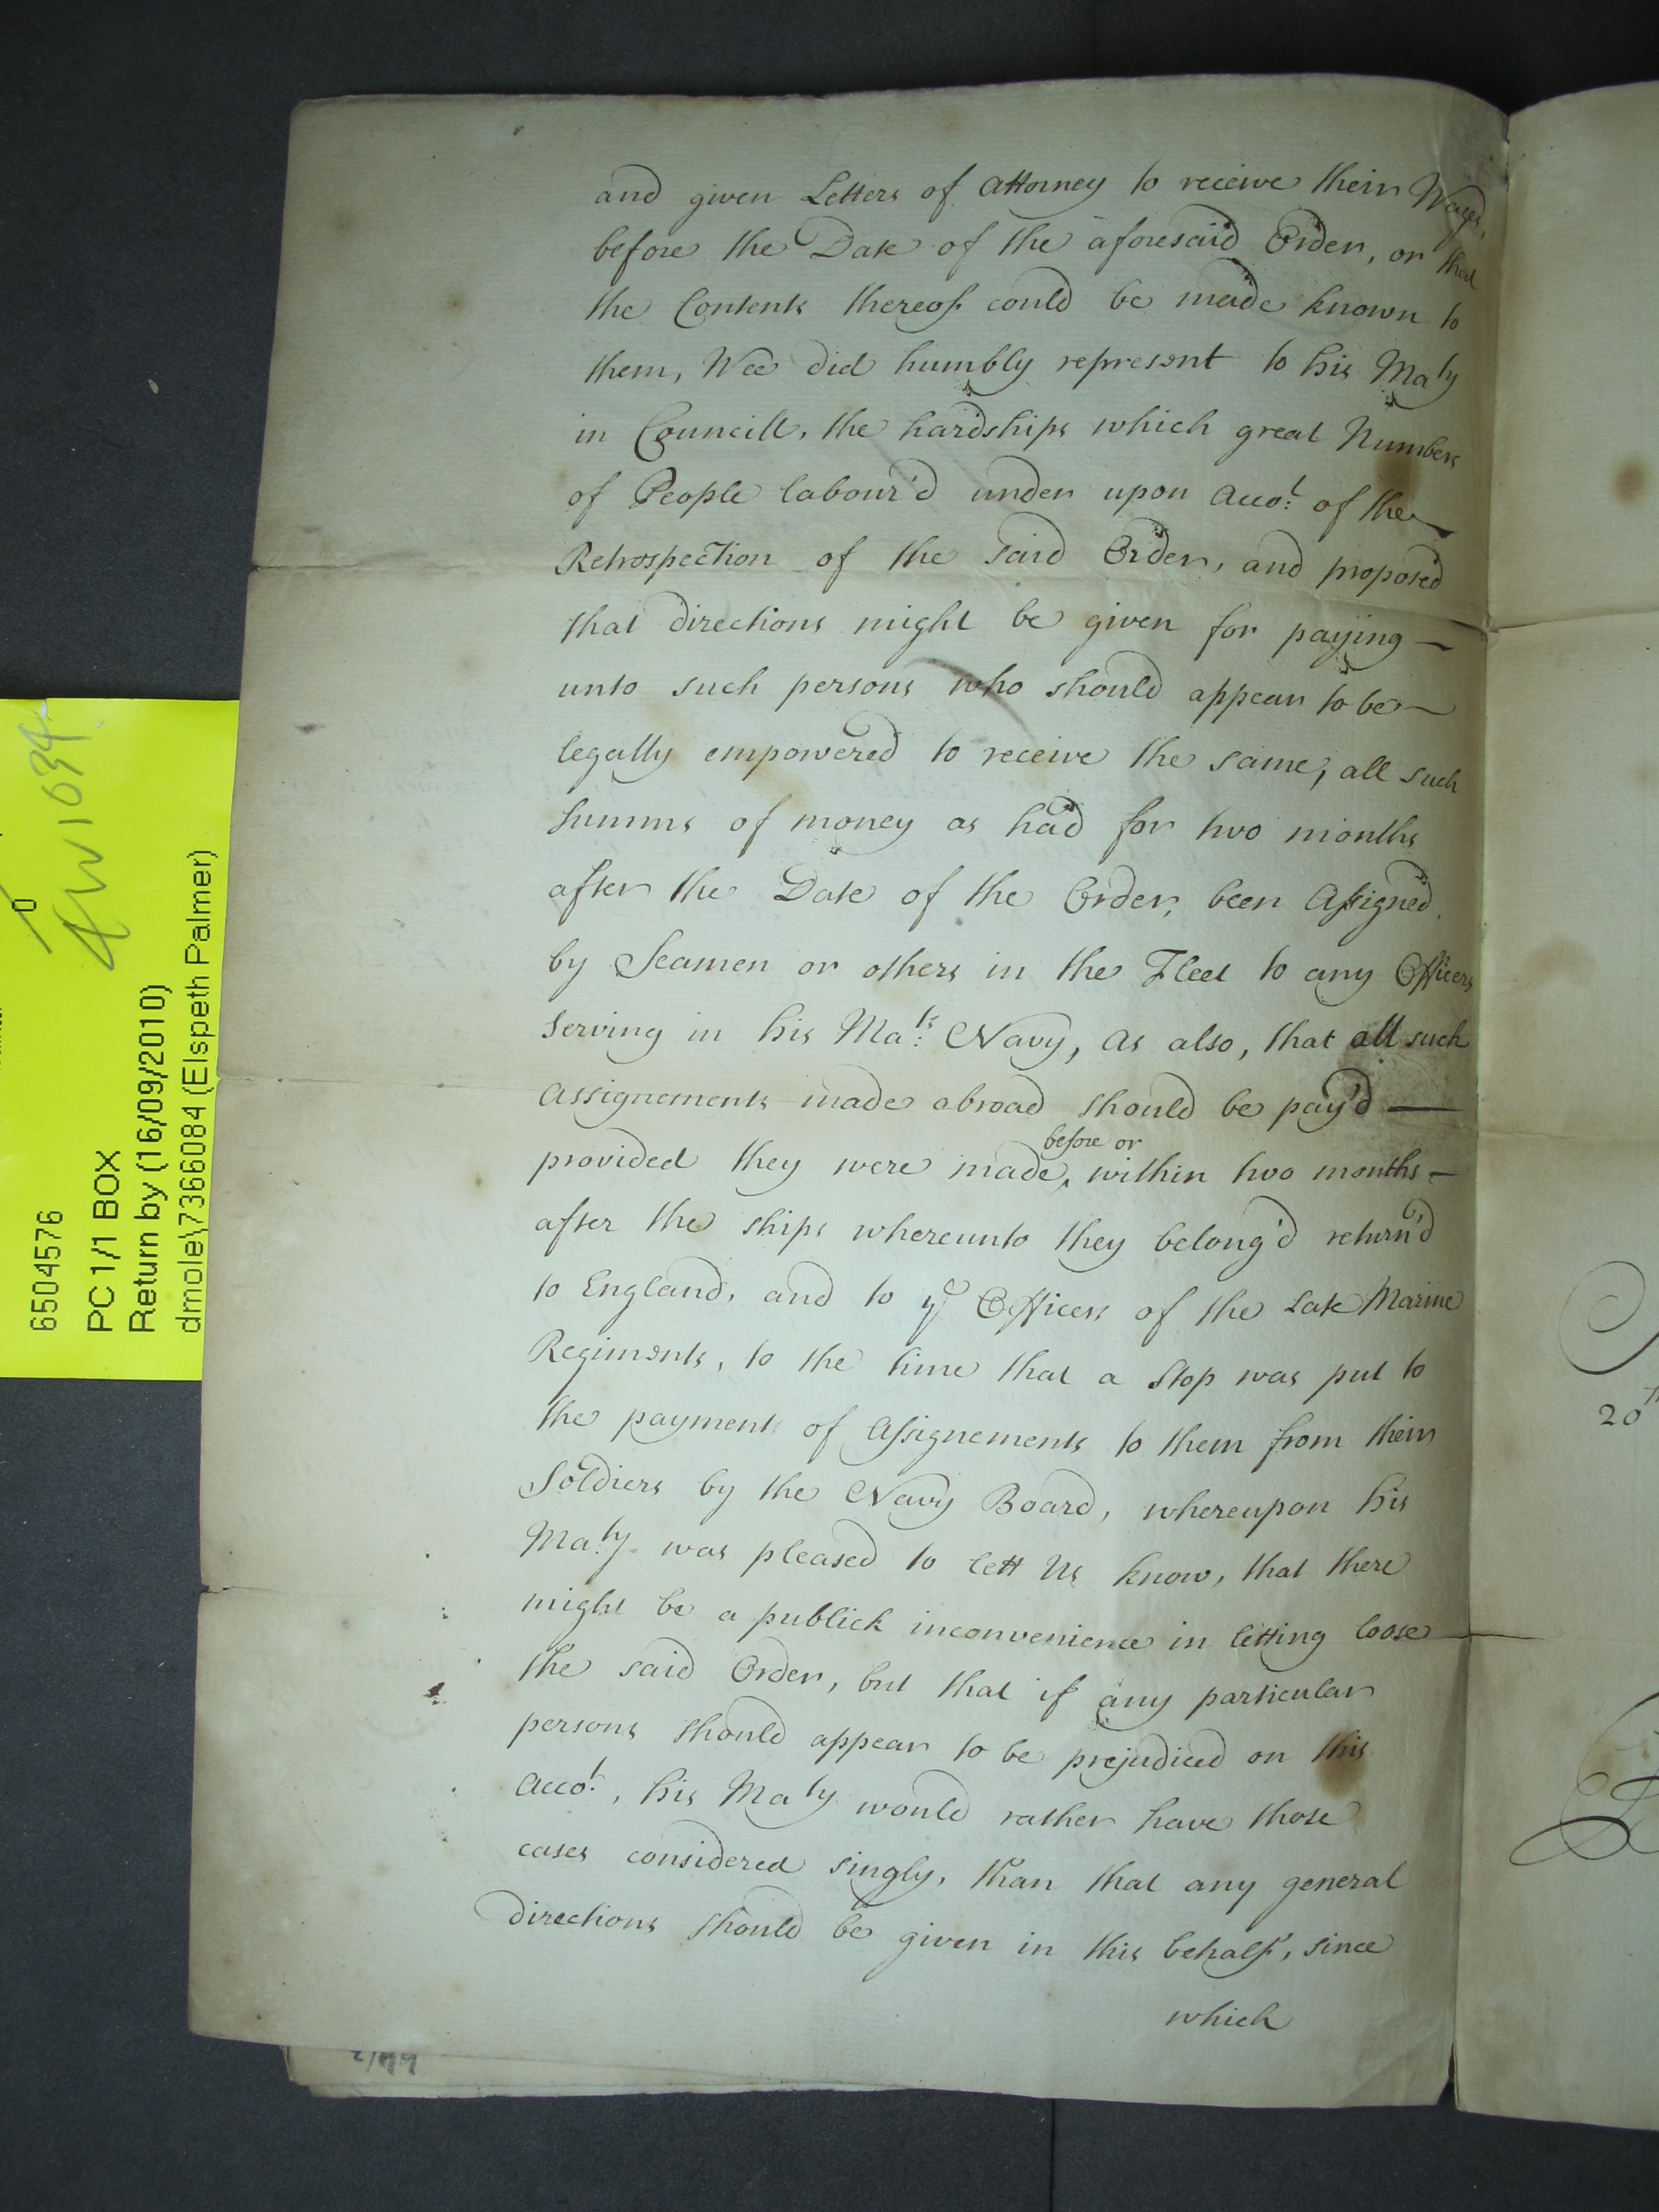 and given Letters of Attorney to receive their Wages,
before the Date of the aforesaid Order, or that
the Contents thereof could be made known to
them, Wee did humbly represent to his Maty
in Councill, the hardships which great Numbers
of People labour'd under upon Acco:t of the
Retrospection of the said Order, and propos'd
that directions might be given for paying —
unto such persons who should appear to be —
legally empowered to receive the same, all such
Summs of money as had for two months
after the Date of the Order, been Assigned
by Seamen or others in the Fleet to any Officers
serving in his Ma:ts Navy, as also, that all such
Assignements made abroad should be pay'd —
before or
provided they were made ‸ within two months —
after the ships whereunto they belong'd return'd
to England, and to ye Officers of the Late Marine
Regiments, to the time that a Stop was put to
the payment of Assignements to them from their
Soldiers by the Navy Board, whereupon his
Ma:ty was pleased to lett Us know, that there
might be a publick inconvenience in letting loose —
the said Order, but that if any particular
persons should appear to be prejudiced on this
Acco:t, his Maty would rather have those
cases considered singly, than that any general
directions should be given in this behalf, since
which
20th
6504576
PC 1/1 BOX
Return by (16/09/2010)
dmole\7366084 (Elspeth Palmer)